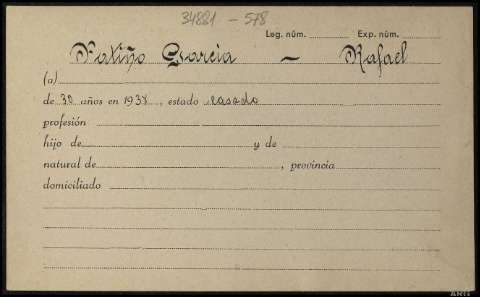 34881 - 578
Leg. núm. Exp. núm.
Patiño García - Rafael
(a)
de 30 años en 1938, estado casado
profesión
hijo de y de
natural de, provincia
domiciliado